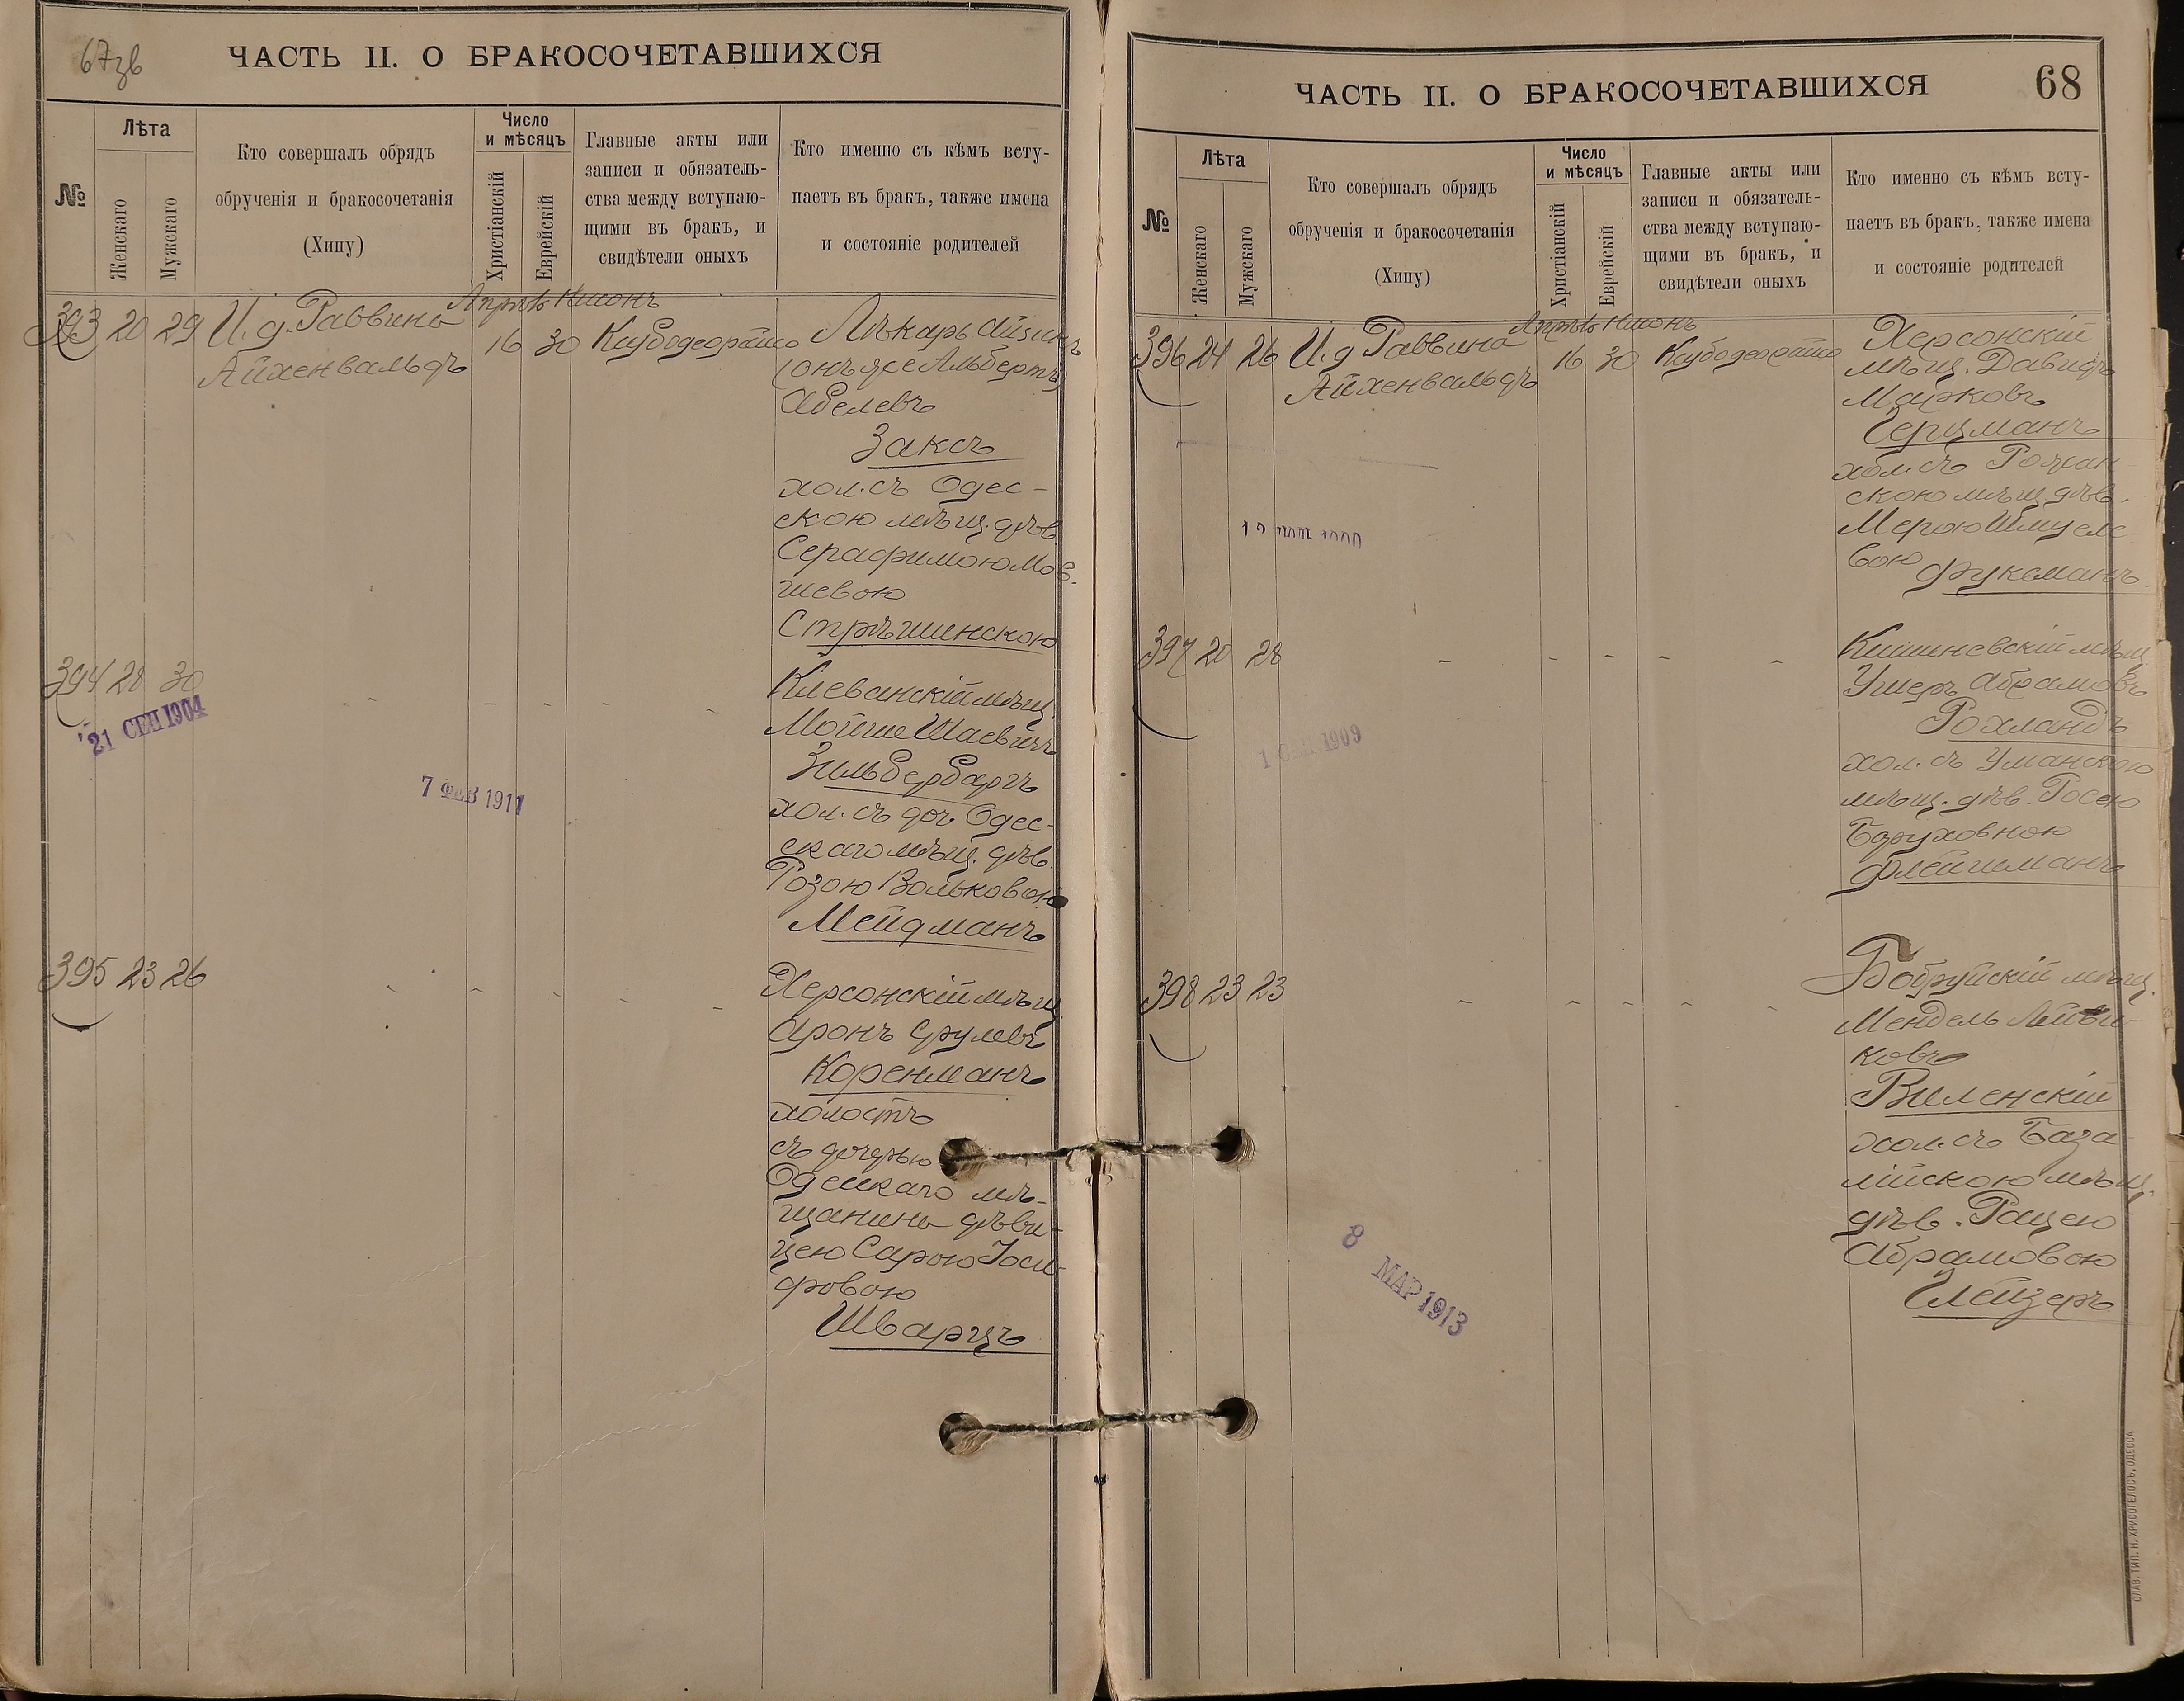 67зв
ЧАСТЬ II. О БРАКОСОЧЕТАВШИХСЯ
№
Лѣта
Женскаго
Мужскаго
Кто совершалъ обрядъ
обрученія и бракосочетанія
(Хипу)
Число
и мѣсяцъ
Христіанскій
Еврейскій
Главные акты или
записи и обязатель-
ства между вступаю-
щими въ бракъ, и
свидѣтели оныхъ
Кто именно съ кѣмъ всту-
паетъ въ бракъ, также имена
и состояніе родителей
393 20 29 И. д. Раввина
Айхенвальдъ
Апрѣль Нисонъ
16 30
Лѣкарь Айзикъ
(онъ же Альбертъ)
Абелевъ
Заксъ
хол. съ Одес-
скою мѣщ. дѣв.
Серафимою Мов-
шевою
Стрѣшинскою
394 28 30
21 СЕН 1904
7 ФЕВ 1911
Клеванскій мѣщ.
Мойше Шаевичъ
Зильбербаргъ
хол. съ доч. Одес-
скаго мѣщ. дѣв.
Розою Вольковою
Мейдманъ
395 23 26
Херсонскій мѣщ.
Аронъ Срулевъ
Коренманъ
холостъ
съ дочерью
Одесскаго мѣ-
щанина дѣви-
цею Сарою Іоси-
фовою
Шварцъ
ЧАСТЬ II. О БРАКОСОЧЕТАВШИХСЯ
68
№
Лѣта
Женскаго
Мужскаго
Кто совершалъ обрядъ
обрученія и бракосочетанія
(Хипу)
Число
и мѣсяцъ
Христіанскій
Еврейскій
Главные акты или
записи и обязатель-
ства между вступаю-
щими въ бракъ, и
свидѣтели оныхъ
Кто именно съ кѣмъ всту-
паетъ въ бракъ, также имена
и состояніе родителей
396 24 26 И. д Раввина
Айхенвальдъ
Апрѣль Нисонъ
16 30
Херсонскій
мѣщ. Давидъ
Марковъ
Герцманъ
хол. съ
скою мѣщ. дѣв.
Мерою Шмуеле-
вою Фуксманъ
397 20 28
1 СЕН 1909
Кишиневскій мѣщ.
Ушеръ Абрамовъ
Рохландъ
хол. съ Уманскою
мѣщ. дѣв. Росею
Боруховною
Флейшманъ
398 23 23
8 МАР 1913
Бобруйскій мѣщ.
Мендель
ковъ
Виленскій
хол. съ База-
лійскою мѣщ.
дѣв. Рацею
Абрамовою
Глейзеръ
СЛАВ. ТИП. Н. ХРИСОГЕЛОСЪ, ОДЕССА